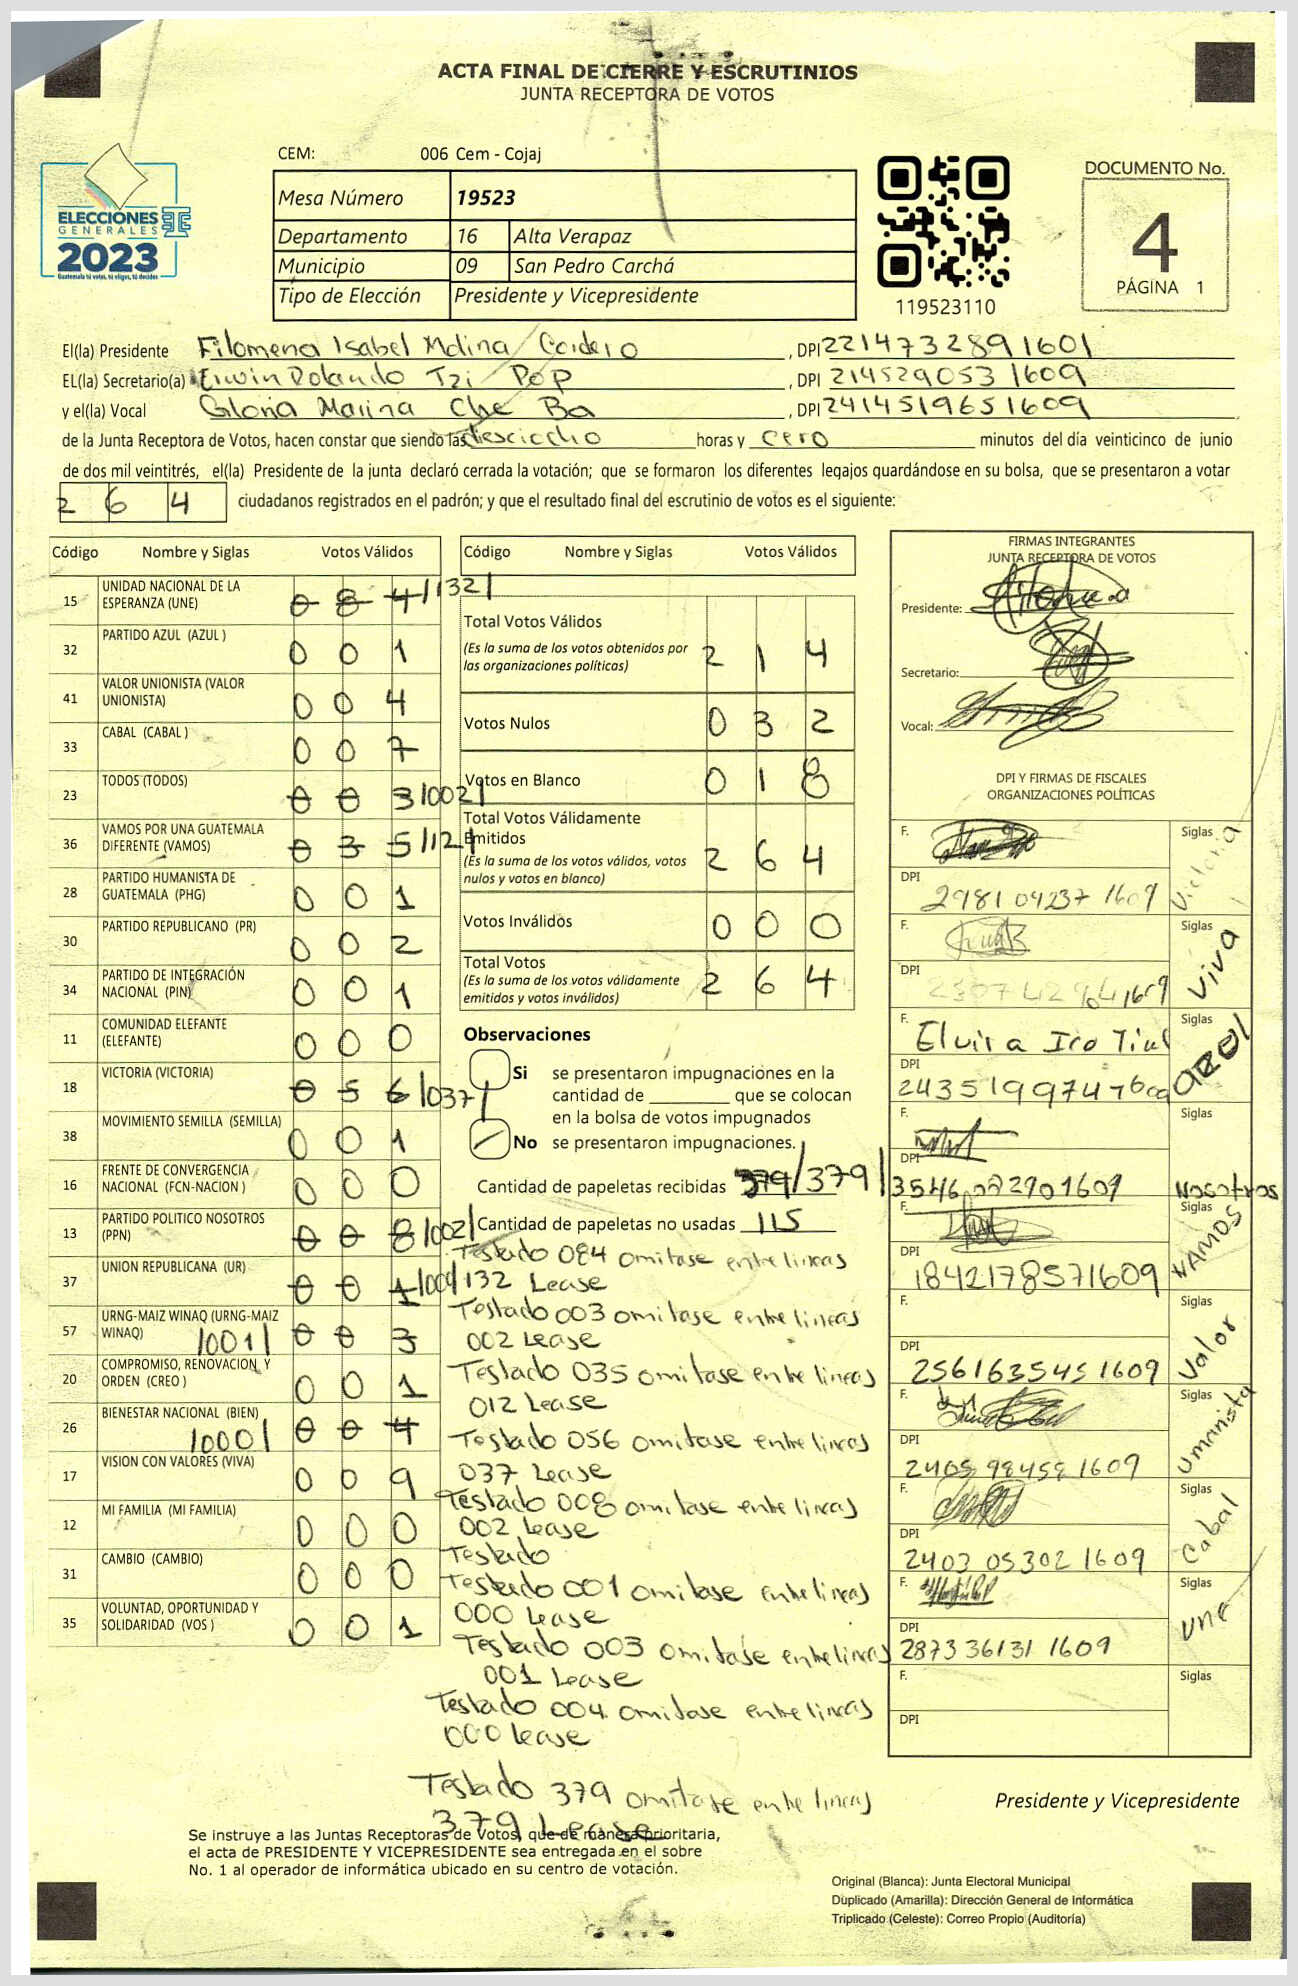 ACTA FINAL DE CIERRE Y ESCRUTINIOS
JUNTA RECEPTORA DE VOTOS
CEM: 006 Cem - Cojaj
ELECCIONES
GENERALES
2023
Guatemala tú votas, tú eliges, tú decides
Mesa Número 19523
Departamento 16 Alta Verapaz
Municipio 09 San Pedro Carchá
Tipo de Elección Presidente y Vicepresidente
119523110
DOCUMENTO No.
4
PÁGINA 1
El(la) Presidente Filomena Isabel Molina Cordero , DPI 2214732891601
EL(la) Secretario(a) Erwin Rolando Tzi Pop , DPI 2145290531609
y el(la) Vocal Gloria Marina Che Ba , DPI 2414519651609
de la Junta Receptora de Votos, hacen constar que siendo las diesciocho horas y cero minutos del día veinticinco de junio
de dos mil veintitrés, el(la) Presidente de la junta declaró cerrada la votación; que se formaron los diferentes legajos guardándose en su bolsa, que se presentaron a votar
2 6 4 ciudadanos registrados en el padrón; y que el resultado final del escrutinio de votos es el siguiente:
Código Nombre y Siglas Votos Válidos
15 UNIDAD NACIONAL DE LA ESPERANZA (UNE) 0 8 4 /132/
32 PARTIDO AZUL (AZUL ) 0 0 1
41 VALOR UNIONISTA (VALOR UNIONISTA) 0 0 4
33 CABAL (CABAL ) 0 0 7
23 TODOS (TODOS) 0 0 3 /002/
36 VAMOS POR UNA GUATEMALA DIFERENTE (VAMOS) 0 3 5 /12/
28 PARTIDO HUMANISTA DE GUATEMALA (PHG) 0 0 1
30 PARTIDO REPUBLICANO (PR) 0 0 2
34 PARTIDO DE INTEGRACIÓN NACIONAL (PIN) 0 0 1
11 COMUNIDAD ELEFANTE (ELEFANTE) 0 0 0
18 VICTORIA (VICTORIA) 0 5 6 /037/
38 MOVIMIENTO SEMILLA (SEMILLA) 0 0 1
16 FRENTE DE CONVERGENCIA NACIONAL (FCN-NACION ) 0 0 0
13 PARTIDO POLITICO NOSOTROS (PPN) 0 0 8 /002/
37 UNION REPUBLICANA (UR) 0 0 1 /000/
57 URNG-MAIZ WINAQ (URNG-MAIZ WINAQ) /001/ 0 0 3
20 COMPROMISO, RENOVACION Y ORDEN (CREO ) 0 0 1
26 BIENESTAR NACIONAL (BIEN) /000/ 0 0 4
17 VISION CON VALORES (VIVA) 0 0 9
12 MI FAMILIA (MI FAMILIA) 0 0 0
31 CAMBIO (CAMBIO) 0 0 0
35 VOLUNTAD, OPORTUNIDAD Y SOLIDARIDAD (VOS ) 0 0 1
Código Nombre y Siglas Votos Válidos
Total Votos Válidos 2 1 4
(Es la suma de los votos obtenidos por las organizaciones políticas)
Votos Nulos 0 3 2
Votos en Blanco 0 1 8
Total Votos Válidamente Emitidos 2 6 4
(Es la suma de los votos válidos, votos nulos y votos en blanco)
Votos Inválidos 0 0 0
Total Votos 2 6 4
(Es la suma de los votos válidamente emitidos y votos inválidos)
Observaciones
Si se presentaron impugnaciones en la
cantidad de ________ que se colocan
en la bolsa de votos impugnados
No se presentaron impugnaciones.
Cantidad de papeletas recibidas 379 /379/
Cantidad de papeletas no usadas 115
Testado 084 omitase entre lineas
132 Lease
Testado 003 omitase entre lineas
002 Lease
Testado 035 omitase entre lineas
012 Lease
Testado 056 omitase entre lineas
037 Lease
Testado 008 omitase entre lineas
002 Lease
Testado
Testado 001 omitase entre lineas
000 Lease
Testado 003 omitase entre lineas
001 Lease
Testado 004 omitase entre lineas
000 Lease
Testado 379 omitase entre lineas
379 Lease
FIRMAS INTEGRANTES
JUNTA RECEPTORA DE VOTOS
Presidente:
Secretario:
Vocal:
DPI Y FIRMAS DE FISCALES
ORGANIZACIONES POLÍTICAS
F. Siglas Victoria
DPI 2981 04237 1609
F. Siglas Viva
DPI
F. Elvira Ico Tiul Siglas Azul
DPI
F. Siglas Nosotros
DPI 3546 1609
F. Siglas VAMOS
DPI 1842178571609
F. Siglas Valor
DPI 2561635451609
F. Siglas Umanista
DPI 2405 98458 1609
F. Siglas Cabal
DPI 2403 05302 1609
F. Siglas une
DPI 2873 36131 1609
F. Siglas
DPI
Presidente y Vicepresidente
Se instruye a las Juntas Receptoras de Votos, que de manera prioritaria,
el acta de PRESIDENTE Y VICEPRESIDENTE sea entregada en el sobre
No. 1 al operador de informática ubicado en su centro de votación.
Original (Blanca): Junta Electoral Municipal
Duplicado (Amarilla): Dirección General de Informática
Triplicado (Celeste): Correo Propio (Auditoría)